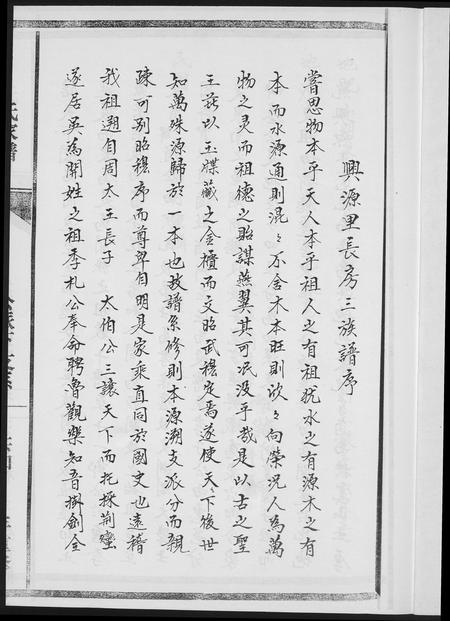 興源里長房三族譜序
嘗思物本乎天人本乎祖人之有祖犹水之有源木之有
本而水源通則混〻不舍木本旺則欣〻向榮况人為萬
物之灵而祖德之貽謀燕翼其可泯没乎哉是以古之聖
王莊以玉牒藏之金櫃而文昭武穆定焉遂使天下後世
知萬殊源歸於一本也故譜系修則本源溯支派分而親
疎可别昭穆序而尊卑自明是家乘直同於國史也遠稽
我祖遡自周太王長子 太伯公三讓天下而托採荆蛮
遂居吳為開姓之祖季札公奉命聘魯觀樂知音掛劍全
氏家譜